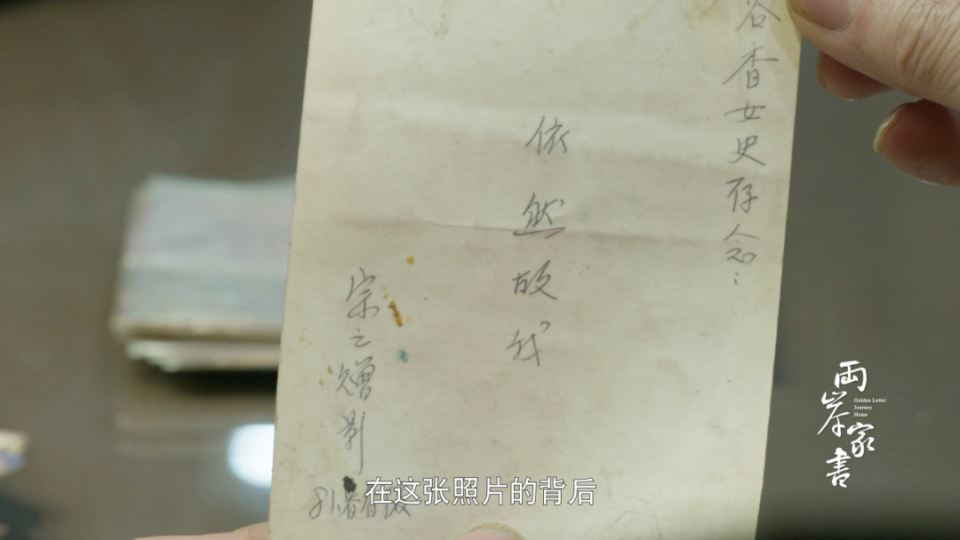 谷香女史存念：
依然故我
宗之赠影
两岸家书
Golden Letter
Journey
Home
在这张照片的背后